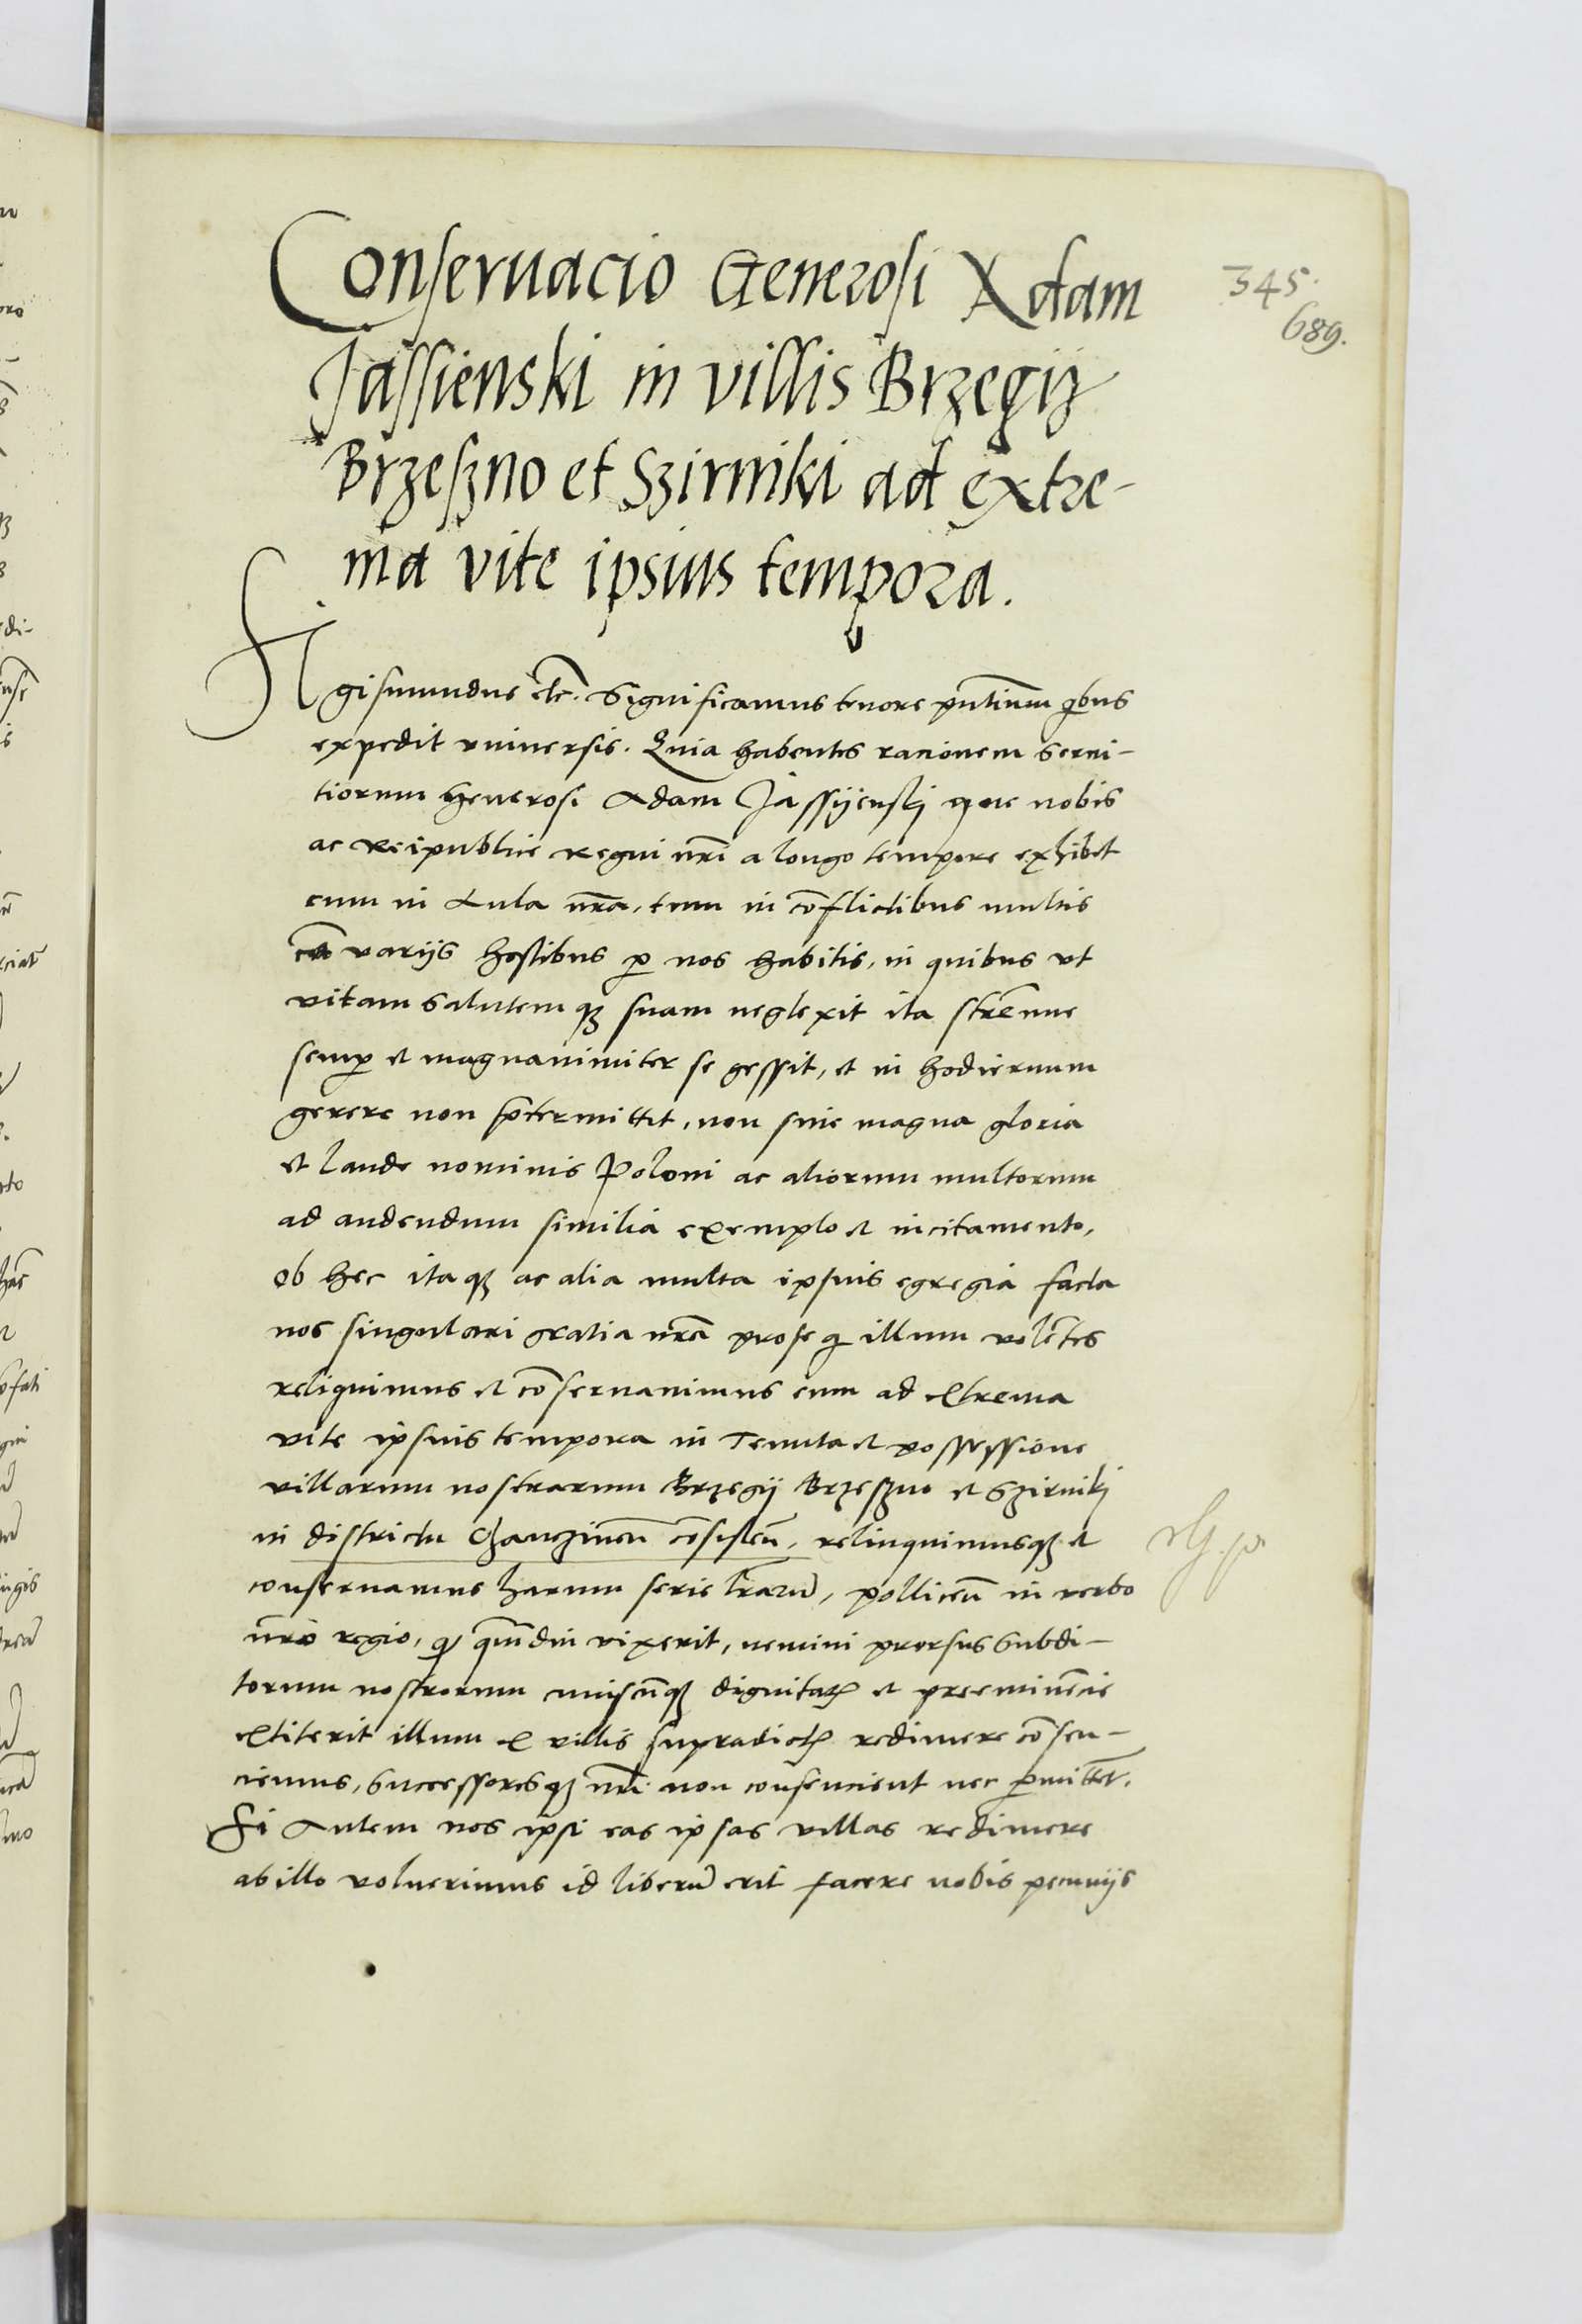 Conseruacio Generosi Adam
Jassienski in villis Brzegij
Brzeszno et Szirniki ad extre-
ma vite ipsius tempora.
345.
689.
Sigismundus etc. Significamus tenore pñtium qbus
expedit vniversis. Quia habentes racionem serui-
tiorum Generosi Adam Jassijenskj que nobis
ac Reipublice Regni nrĩ a longo tempore exhibet
cum in Aula nrã, tum in cõflictibus multis
cũ varijs hostibus p nos habitis, in quibus vt
vitam salutemqȝ suam neglexit ita strẽnue
semp et magnanimiter se gessit, et in hodiernum
gerere non p̃termittit, non sine magna gloria
et laude nominis Poloni ac aliorum multorum
ad audendum similia exemplo et incitamento,
ob hec itaqȝ ac alia multa ipsius egregia facta
nos singulari gratia nrã proseq illum volẽtes
reliquimus et cõseruauimus eum ad extrema
vite ipsius tempora in Tenuta et possessione
villarum nostrarum Brzegij Brzeszno et Szirnikj
in districtu Chanczineñ cõsisteñ, relinquimusqȝ et
conseruamus harum serie lrarũ, polliceñ in verbo
nrõ regio, q qmdiu vixerit, nemini prorsus subdi-
torum nostrorum cuiuscũqȝ dignitatꝭ et preeminẽcie
extiterit illum ex villis supradictꝭ redimere cõsen-
ciemus, successoresqȝ nrĩ non consencient nec pmittẽt.
Si Autem nos ipsi eas ipsas villas redimere
ab illo voluerimus id liberũ erit facere nobis pecunijs